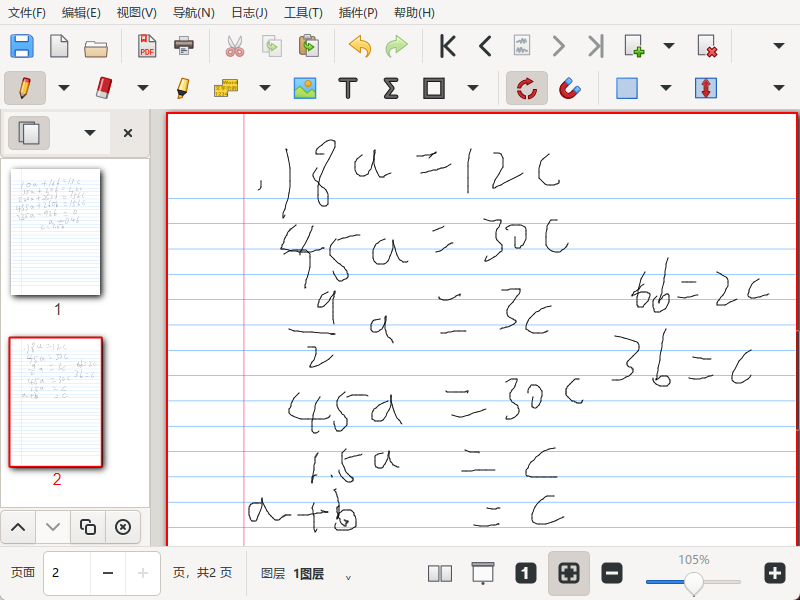 文件(F) 编辑(E) 视图(V) 导航(N) 日志(J) 工具(T) 插件(P) 帮助(H)
18a = 12c
45a = 30c
9/2 a = 3c
6b = 2c
3b = c
45a = 30c
1.5a = c
a+b = c
1
2
页面 2 页，共2 页 图层 1图层 105%